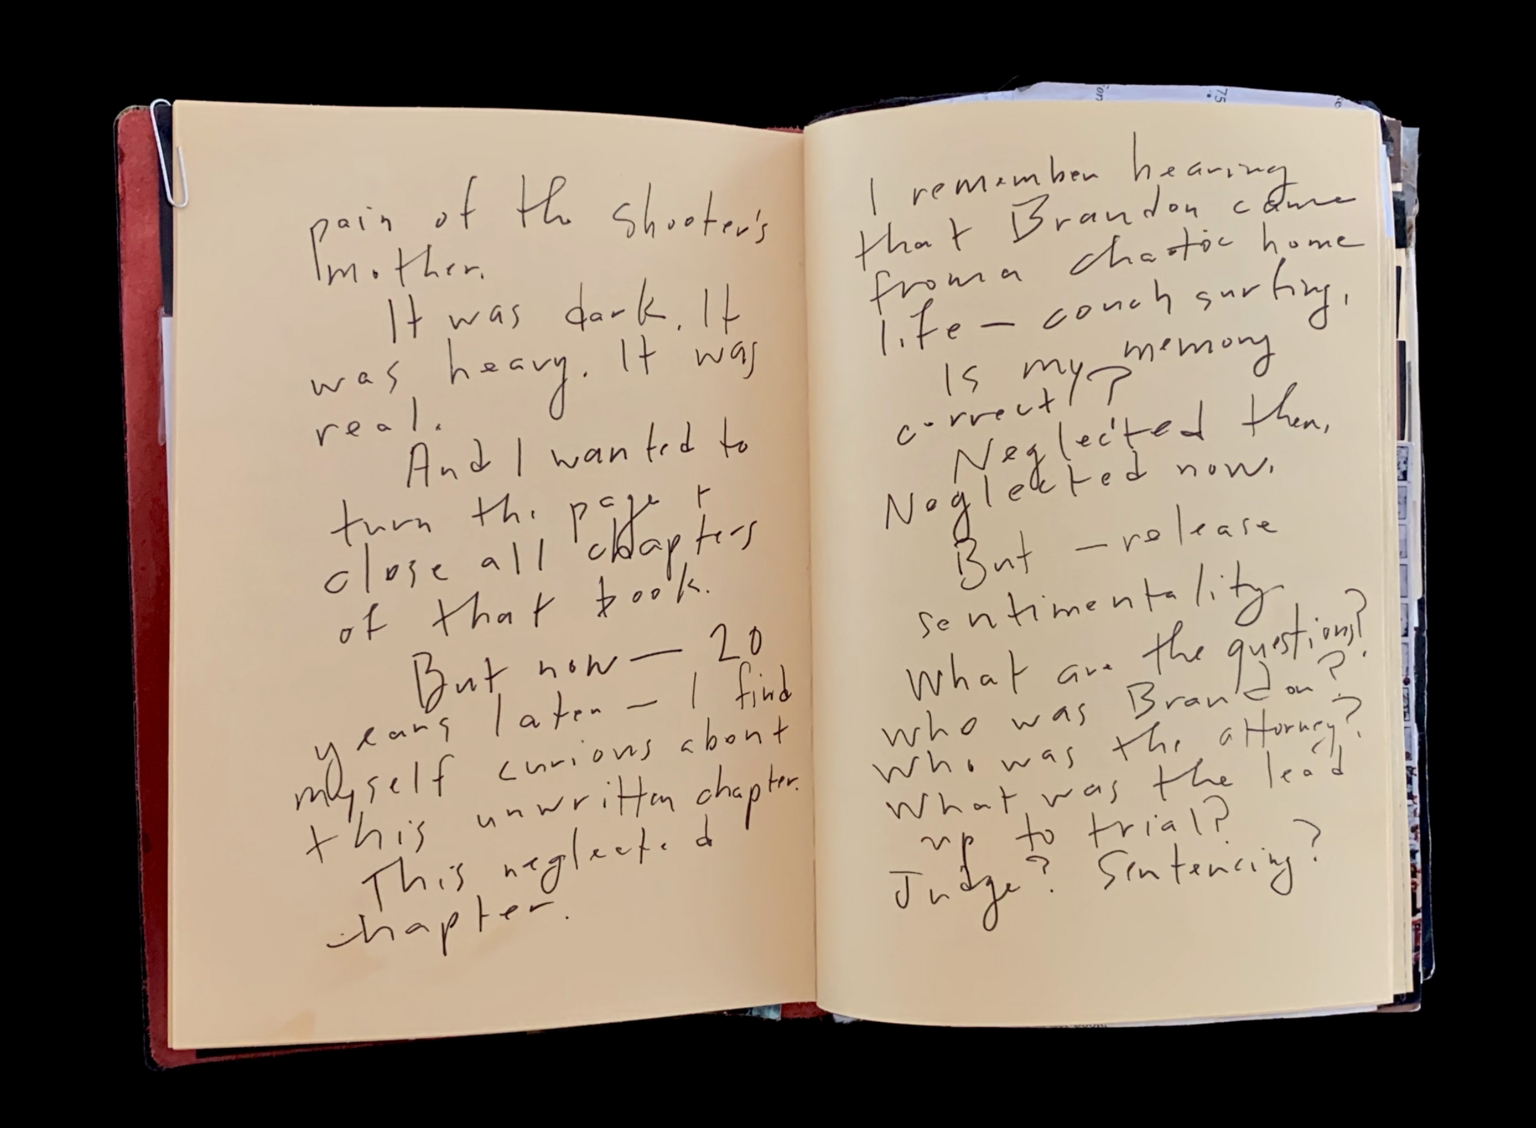 pain of the shooter's
mother.
It was dark. It
was heavy. It was
real.
And I wanted to
turn the page +
close all chapters
of that book.
But now — 20
years later — I find
myself curious about
this unwritten chapter.
This neglected
chapter.
I remember hearing
that Brandon came
from a chaotic home
life — couch surfing.
Is my memory
correct?
Neglected then.
Neglected now.
But — release
sentimentality
What are the questions?
Who was Brandon?
Who was the attorney?
What was the lead
up to trial?
Judge? Sentencing?